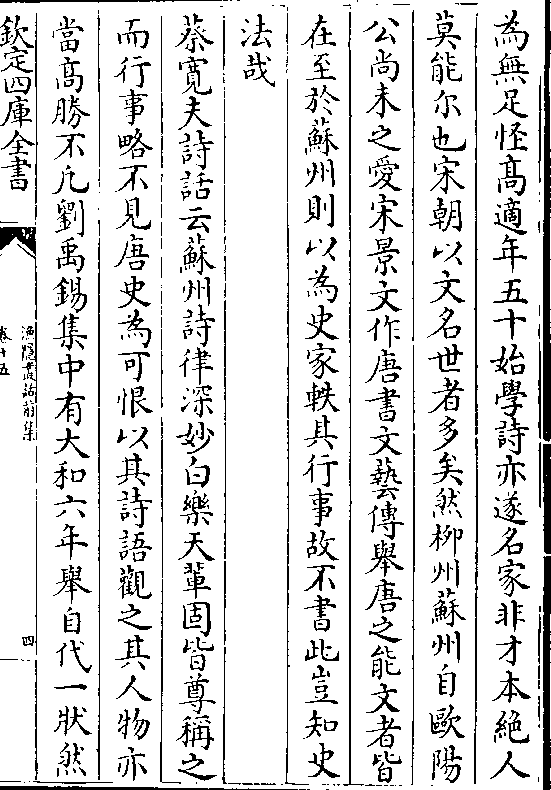 為無足怪髙適年五十始學詩亦遂名家非才本絶人
莫能尔也宋朝以文名世者多矣然柳州蘇州自歐陽
公尚未之愛宋景文作唐書文藝傳舉唐之能文者皆
在至於蘇州則以為史家軼其行事故不書此豈知史
法哉
蔡寛夫詩話云蘇州詩律深妙白樂天輩固皆尊稱之
而行事略不見唐史為可恨以其詩語觀之其人物亦
當髙勝不凡劉禹錫集中有大和六年舉自代一狀然
欽定四庫全書
漁隱叢話前集
卷十五
四